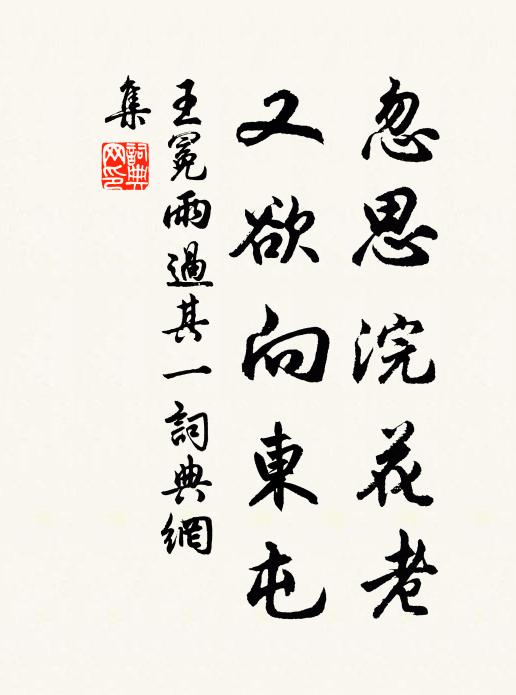 忽思浣花老
又欲向東屯
王冕雨過其一詞典網
集
詞典网印